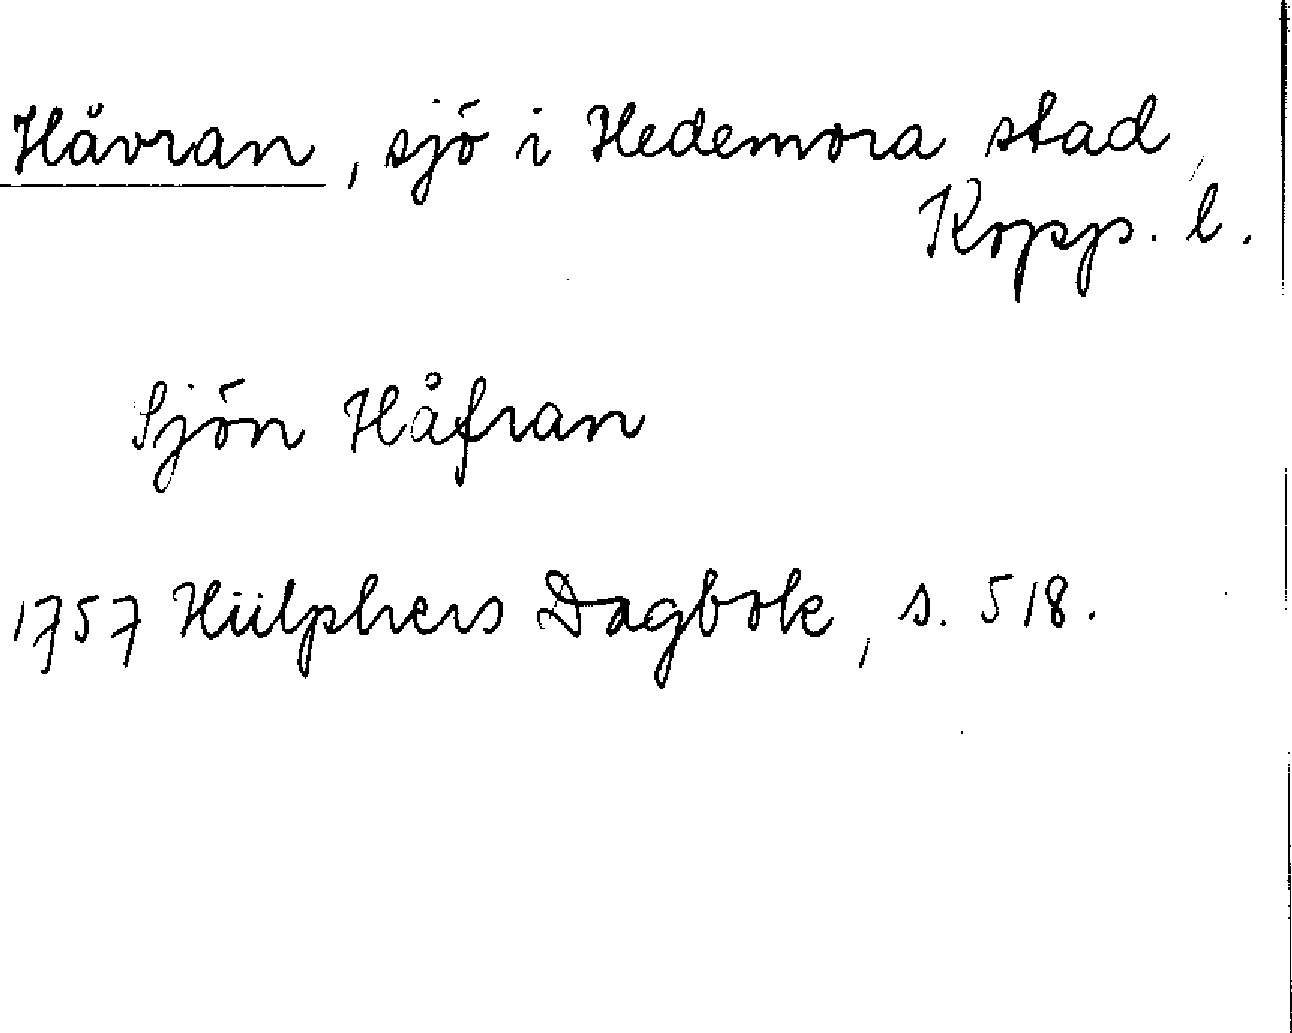 Håvran, sjö i Hedemora stad,
Kopp. l.
Sjön Håfran
1757 Hülphers Dagbok, s. 518.